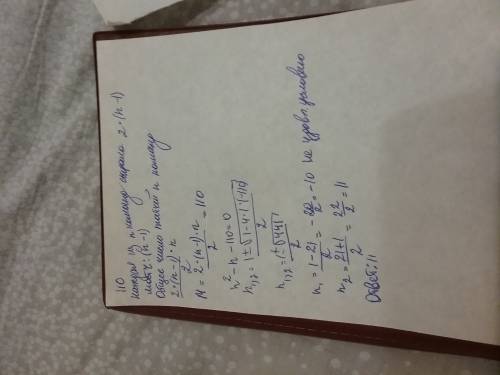 110
каждая из n команд сыграла 2·(n-1)
матч: (n-1)
Общее число матчей n команд
2·(n-1)·n / 2
N = 2·(n-1)·n / 2 = 110
n² - n - 110 = 0
n₁,₂ = 1 ± √1-4·1·(-110) / 2
n₁,₂ = 1 ± √441 / 2
n₁ = 1-21 / 2 = -20 / 2 = -10 не удовл. условию
n₂ = 21+1 / 2 = 22 / 2 = 11
Ответ: 11